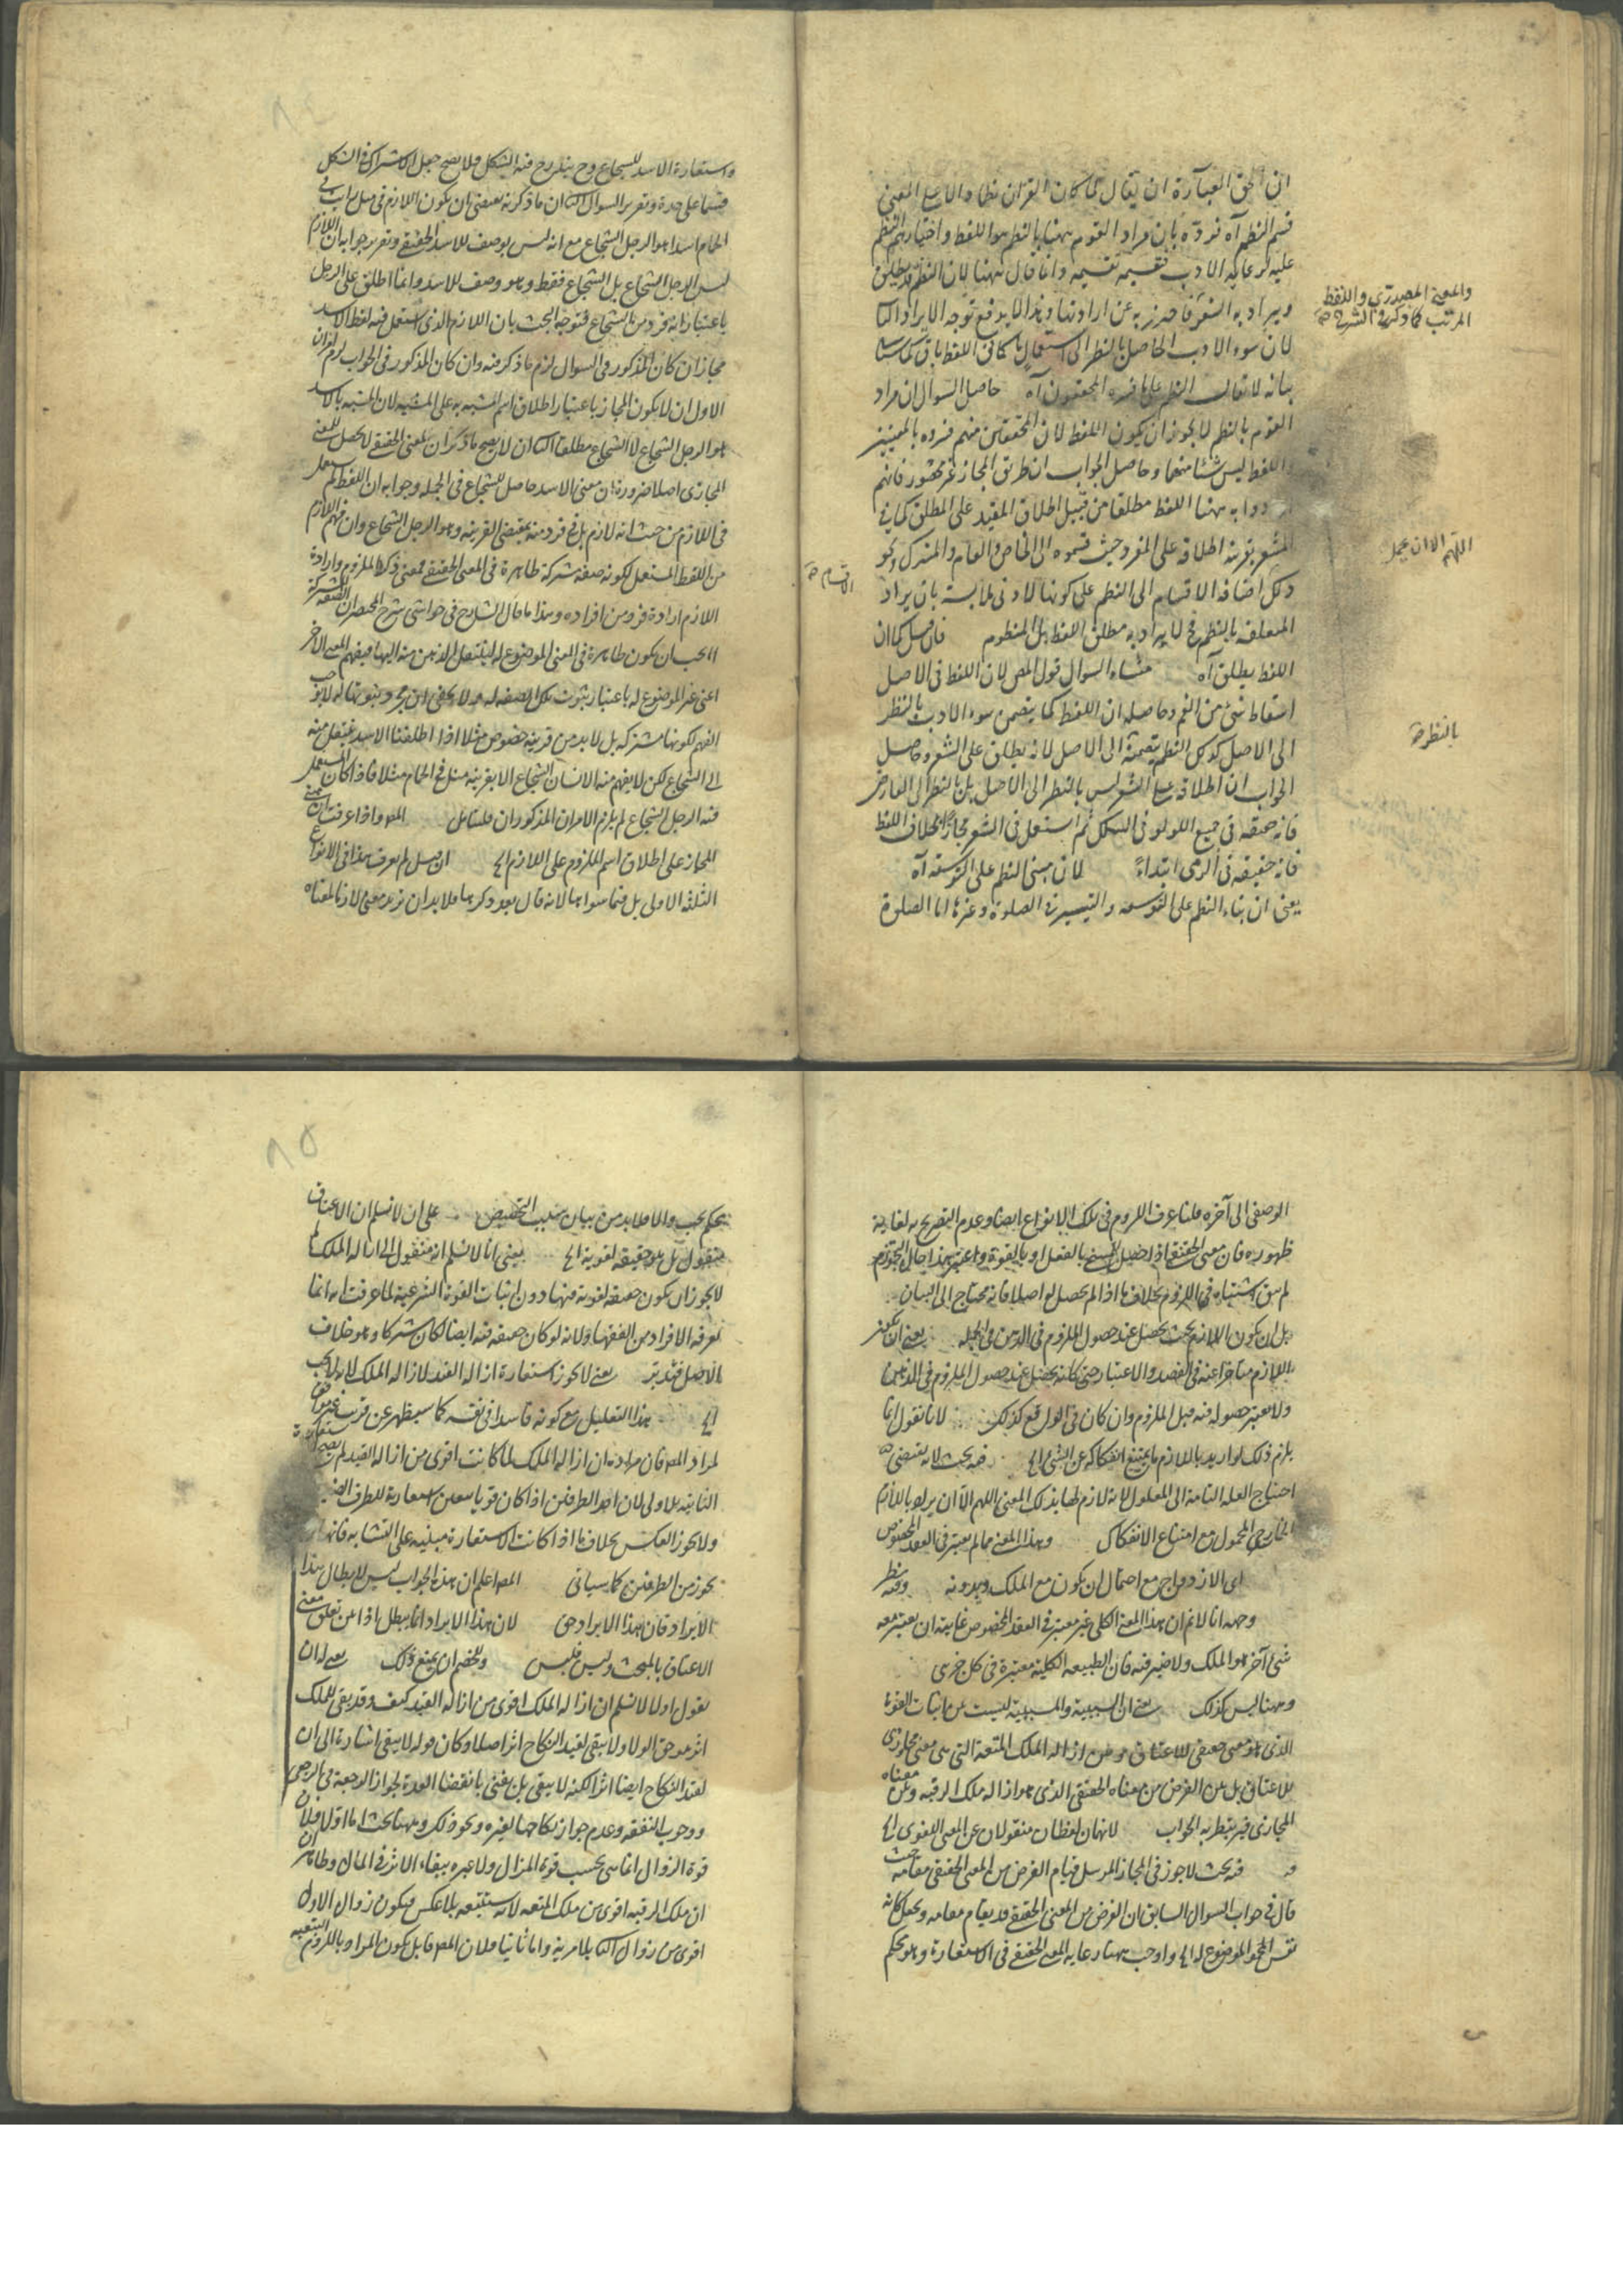 ان الحق العبارة ان يقال لما كان القران نظما دالا على المعنى
قسم النظم آه فرده بان مراد القوم ههنا بالنظم هو اللفظ واختيارهم النظم
عليه لرعاية الادب فتقسيمه تقسيمه وانما قال ههنا لان النظم قد يطلق
ويراد به الشعر فاحترز به عن ارادتها وبهذا لا يدفع توجه الايراد
لان سوء الادب الحاصل بالنظر الى استعمال ما كان اللفظ باق كما
بيانه لا يقال النظم على ما فسره المحققون آه حاصل السوال ان مراد
القوم بالنظم لا يجوز ان يكون اللفظ لان المحققين منهم فسروه بالمعنيين
واللفظ ليس شيئا منهما وحاصل الجواب ان طريق المجاز غير مهجور فانهم
ارادوا به ههنا اللفظ مطلقا من قبيل اطلاق المقيد على المطلق كما في
المشعر بقرينة اطلاقه على المفرد حيث قسموه الى الخاص والعام والمشترك ونحو
ذلك اضافة الاقسام الى النظم على كونها لادنى ملابسة بان يراد
المتعلقة بالنظم فح لا يراد به مطلق اللفظ بل المنظوم فان قيل كما ان
اللفظ يطلق آه منشاء السوال قول المص لان اللفظ في الاصل
اسقاط شئ من الفم وحاصله ان اللفظ كما يتضمن سوء الادب بالنظر
الى الاصل كذلك النظم يتضمنه الى الاصل لانه يطلق على الشعر وحاصل
الجواب ان اطلاقه على الشعر ليس بالنظر الى الاصل بل بالنظر الى العارض
فانه حقيقة في جمع اللولو في السلك ثم استعمل في الشعر مجازا بخلاف اللفظ
فانه حقيقة في الرمى ابتداء لان مبنى النظم على التوسعة آه
يعنى ان بناء النظم على التوسعة والتيسير في الصلوة وغيرها اما الصلوة
والمعنى المصدرى واللفظ
المرتب كما ذكره الشرح صح
اللهم الا ان يحمل
بالنظر صح
الاقسام صح
واستعارة الاسد للشجاع وح يندرج فيه الشكل فلا يصح جعل الاشتراك في الشكل
قسما على حدة وتقرير السوال ان ما ذكرته يقتضى ان يكون اللازم في مثل رايت في
الحمام اسدا هو الرجل الشجاع مع انه ليس بوصف للاسد الحقيقى وتقرير جوابه ان اللازم
ليس الرجل الشجاع بل الشجاع فقط وهو وصف للاسد وانما اطلق على الرجل
باعتبار انه فرد من الشجاع فتوجه البحث بان اللازم الذى استعمل فيه لفظ الاسد
مجازا ان كان المذكور في السوال لزم ما ذكر فيه وان كان المذكور في الجواب لزم امران
الاول ان لا يكون المجاز باعتبار اطلاق اسم المشبه به على المشبه لان المشبه بالاسد
هو الرجل الشجاع لا الشجاع مطلقا ان لا يصح ما ذكر ان المعنى الحقيقى لا يحصل للمعنى
المجازى اصلا ضرورة ان معنى الاسد حاصل للشجاع في الجملة وجوابه ان اللفظ لم يستعمل
في اللازم من حيث انه لازم بل في فرد منه بمقتضى القرينة وهو الرجل الشجاع وان فهم اللازم
من اللفظ المستعمل لكونه صفة مشتركة ظاهرة في المعنى الحقيقى فمعنى ذكر الملزوم وارادة
اللازم ارادة فرد من افراده وهذا ما قال الشارح في حواشى شرح المختصر ان الصفة المشتركة
يجب ان يكون ظاهرة في المعنى الموضوع له لينتقل الذهن منه اليها فيفهم المعنى الاخر
اعنى غير الموضوع له باعتبار ثبوت تلك الصفة له ولا يخفى ان مجرد ثبوتها له لا يوجب
الفهم لكونها مشتركة بل لا بد من قرينة مخصوص مثلا اذا اطلقنا الاسد ينتقل منه
الى الشجاع لكن لا يفهم منه الانسان الشجاع الا بقرينة مثل في الحمام مثلا فاذا كان المستعمل
فيه الرجل الشجاع لم يلزم الامران المذكوران فليتامل المص واذا عرفت ان مبنى
المجاز على اطلاق اسم الملزوم على اللازم الخ ان قيل لم يعرف هذا في الانواع
الثلثة الاولى بل فيما سواها لانه قال بعد ذكرها فلا بد ان تريد معنى لازما لمعناه
٨٤
الوصفى الى آخره قلنا عرف اللزوم في تلك الانواع ايضا وعدم التصريح به لغاية
ظهوره فان معنى الحقيقى اذا حصل للشئ بالفعل او بالقوة واعتبر هذا حال التجوز
لم يبق اشتباه في اللزوم بخلاف ما اذا لم يحصل له اصلا فانه محتاج الى البيان
بل ان يكون اللازم بحيث يحصل عند حصول الملزوم في الذهن في الجملة يعنى ان يكون
اللازم متاخرا عنه في القصد والاعتبار حتى كانه يحصل عند حصول الملزوم في الذهن
ولا يعتبر حصوله فيه قبل الملزوم وان كان في الواقع كذلك لانا نقول انما
يلزم ذلك لو اريد باللازم ما يمتنع انفكاكه عن الشئ الخ فيه بحث لانه يقتضى
احتياج العلة التامة الى المعلول لانه لازم لها بذلك المعنى اللهم الا ان يراد باللازم
الخارجى المحمول مع امتناع الانفكاك وهذا المعنى مما لم يعتبر في العقد المخصوص
اى الازدواج مع احتمال ان يكون مع الملك وبدونه وفيه نظر
وجهه انا لا نم ان هذا المعنى الكلى غير معتبر في العقد المخصوص غايته ان يعتبر معه
شئ آخر هو الملك ولا ضير فيه فان الطبيعة الكلية معتبرة في كل جزئى
وههنا ليس كذلك يعنى ان السببية والمسببية ليست بين اثبات القوة
الذى هو معنى حقيقى للاعتاق وبين ازالة الملك المتعة التى هى معنى مجازى
للاعتاق بل بين الغرض من معناه الحقيقى الذى هو ازالة ملك الرقبة وبين معناه
المجازى فيرتبط به الجواب لانهما لفظان منقولان عن المعنى اللغوى الخ
فيه بحث لا يجوز في المجاز المرسل قيام الغرض من المعنى الحقيقى مقامه حيث
قال في جواب السوال السابق ان الغرض من المعنى الحقيقى قد يقام مقامه ويجعل كانه
نفس الموضوع له الخ واوجب ههنا رعاية المعنى الحقيقى في الاستعارة وهو تحكم
٨٥
تحكم يجب والا فلا بد من بيان سبب التخصيص على ان لا نسلم ان الاعتاق
منقول بل هو حقيقة لغوية الخ يعنى انا لا نسلم انه منقول الى ازالة الملك لم
لا يجوز ان يكون حقيقة لغوية فيها دون اثبات القوة الشرعية لما عرفت انه انما
يعرفه الافراد من الفقهاء ولانه لو كان حقيقة فيه ايضا لكان مشتركا وهو خلاف
الاصل فتدبر يعنى لا يجوز استعارة ازالة القيد لازالة الملك لانه لا يجب
الخ هذا التعليل مع كونه فاسدا في نفسه كما سيظهر عن قريب غير موافق
لمراد المص فان مراده ان ازالة الملك لما كانت اقوى من ازالة القيد لم يصح استعارة
الثانية للاولى لان احد الطرفين اذا كان قويا يتعين استعارته للطرف
ولا يجوز العكس بخلاف ما اذا كانت الاستعارة مبنية على التشابه فانها
يجوز من الطرفين كما سياتى المص اعلم ان هذا الجواب ليس لابطال هذا
الايراد فان هذا الايراد حق لان هذا الايراد انما يبطل اذا بين تعلق معنى
الاعتاق بالمبحث وليس فليس وللخصم ان يمنع ذلك يعنى له ان
يقول اولا لا نسلم ان ازالة الملك اقوى من ازالة القيد كيف وقد يبقى للملك
اثر هو حق الولاء ولا يبقى لقيد النكاح اثر اصلا وكان قوله لا يبقى اشارة الى ان
لقيد النكاح ايضا اثرا لكنه لا يبقى بل يفنى بانقضاء العدة لجواز الرجعة في الرجعى
ووجوب النفقة وعدم جواز نكاحها لغيره ونحو ذلك وههنا بحث اما اولا فلان
قوة الزوال انما هى بحسب قوة المزال ولا عبرة ببقاء الاثر في المال وظاهر ان
ان ملك الرقبة اقوى من ملك المتعة لانه يستتبعه بلا عكس فيكون زوال الاول
اقوى من زوال بلا مرية واما ثانيا فلان المص قابل بكون المراد باللزوم التبعية